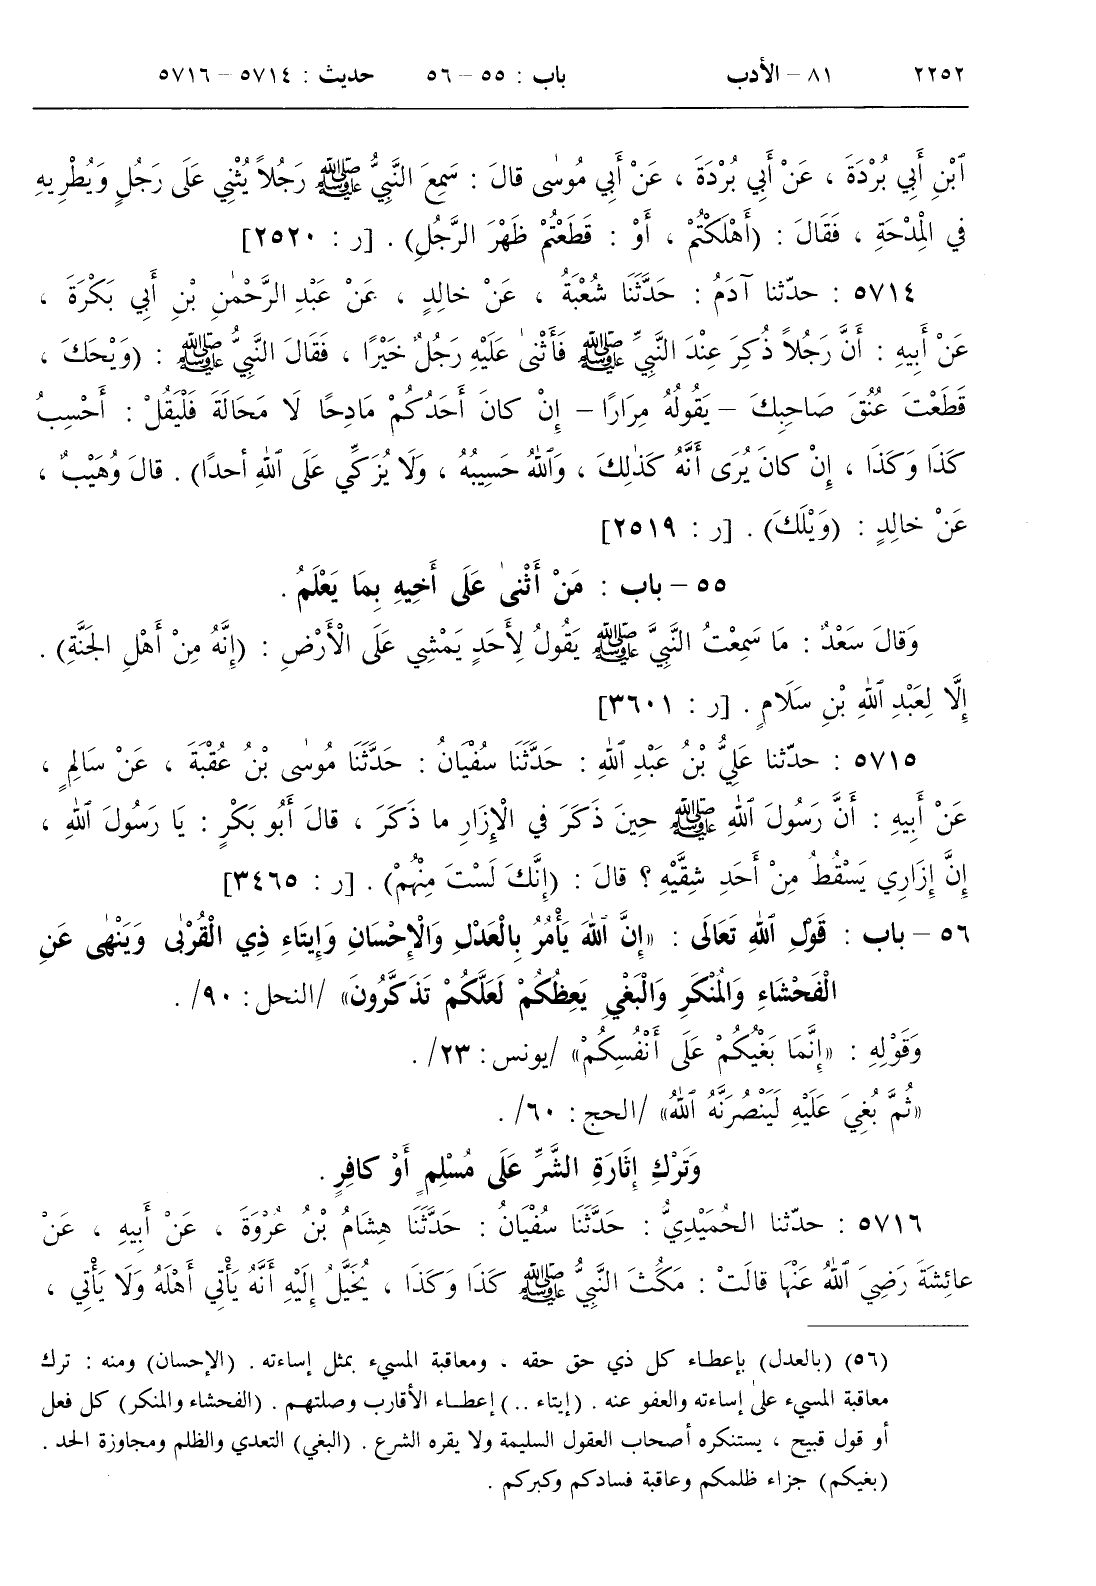 ٢٢٥٢ ٨١ – الأدب باب : ٥٥ – ٥٦ حديث : ٥٧١٤ – ٥٧١٦
ٱبْنِ أَبِي بُرْدَةَ ، عَنْ أَبِي بُرْدَةَ ، عَنْ أَبِي مُوسٰى قالَ : سَمِعَ النَّبِيُّ ﷺ رَجُلاً يُثْنِي عَلَى رَجُلٍ وَيُطْرِيهِ
فِي الْمِدْحَةِ ، فَقَالَ : (أَهْلَكْتُمْ ، أَوْ : قَطَعْتُمْ ظَهْرَ الرَّجُلِ) . [ر : ٢٥٢٠]
٥٧١٤ : حدّثنا آدَمُ : حَدَّثَنَا شُعْبَةُ ، عَنْ خالِدٍ ، عَنْ عَبْدِ الرَّحْمٰنِ بْنِ أَبِي بَكْرَةَ ،
عَنْ أَبِيهِ : أَنَّ رَجُلاً ذُكِرَ عِنْدَ النَّبِيِّ ﷺ فَأَثْنىٰ عَلَيْهِ رَجُلٌ خَيْرًا ، فَقَالَ النَّبِيُّ ﷺ : (وَيْحَكَ ،
قَطَعْتَ عُنُقَ صَاحِبِكَ – يَقُولُهُ مِرَارًا – إِنْ كانَ أَحَدُكُمْ مَادِحًا لَا مَحَالَةَ فَلْيَقُلْ : أَحْسِبُ
كَذَا وَكَذَا ، إِنْ كانَ يُرَى أَنَّهُ كَذٰلِكَ ، وَٱللهُ حَسِيبُهُ ، وَلَا يُزَكِّي عَلَى ٱللهِ أحدًا) . قالَ وُهَيْبٌ ،
عَنْ خالِدٍ : (وَيْلَكَ) . [ر : ٢٥١٩]
٥٥ – باب : مَنْ أَثْنىٰ عَلَى أَخِيهِ بِمَا يَعْلَمُ .
وَقالَ سَعْدٌ : مَا سَمِعْتُ النَّبِيَّ ﷺ يَقُولُ لِأَحَدٍ يَمْشِي عَلَى الْأَرْضِ : (إِنَّهُ مِنْ أَهْلِ الجَنَّةِ) .
إِلَّا لِعَبْدِ ٱللهِ بْنِ سَلَامٍ . [ر : ٣٦٠١]
٥٧١٥ : حدّثنا عَلِيُّ بْنُ عَبْدِ ٱللهِ : حَدَّثَنَا سُفْيَانُ : حَدَّثَنَا مُوسٰى بْنُ عُقْبَةَ ، عَنْ سَالِمٍ ،
عَنْ أَبِيهِ : أَنَّ رَسُولَ ٱللهِ ﷺ حِينَ ذَكَرَ فِي الْإِزَارِ ما ذَكَرَ ، قالَ أَبُو بَكْرٍ : يَا رَسُولَ ٱللهِ ،
إِنَّ إِزَارِي يَسْقُطُ مِنْ أَحَدِ شِقَّيْهِ ؟ قالَ : (إِنَّكَ لَسْتَ مِنْهُمْ) . [ر : ٣٤٦٥]
٥٦ – باب : قَوْلِ ٱللهِ تَعَالَى : «إِنَّ ٱللهَ يَأْمُرُ بِالْعَدْلِ وَالْإِحْسَانِ وَإِيتَاءِ ذِي الْقُرْبٰى وَيَنْهٰى عَنِ
الْفَحْشَاءِ وَالْمُنْكَرِ وَالْبَغْيِ يَعِظُكُمْ لَعَلَّكُمْ تَذَكَّرُونَ» /النحل: ٩٠/ .
وَقَوْلِهِ : «إِنَّمَا بَغْيُكُمْ عَلَى أَنْفُسِكُمْ» /يونس: ٢٣/ .
«ثُمَّ بُغِيَ عَلَيْهِ لَيَنْصُرَنَّهُ ٱللهُ» /الحج: ٦٠/ .
وَتَرْكِ إِثَارَةِ الشَّرِّ عَلَى مُسْلِمٍ أَوْ كافِرٍ .
٥٧١٦ : حدّثنا الحُمَيْدِيُّ : حَدَّثَنَا سُفْيَانُ : حَدَّثَنَا هِشَامُ بْنُ عُرْوَةَ ، عَنْ أَبِيهِ ، عَنْ
عائِشَةَ رَضِيَ ٱللهُ عَنْهَا قالَتْ : مَكَثَ النَّبِيُّ ﷺ كَذَا وَكَذَا ، يُخَيَّلُ إِلَيْهِ أَنَّهُ يَأْتِي أَهْلَهُ وَلَا يَأْتِي ،
(٥٦) (بالعدل) بإعطاء كل ذي حق حقه ، ومعاقبة المسيء بمثل إساءته . (الإحسان) ومنه : ترك
معاقبة المسيء على إساءته والعفو عنه . (إيتاء ..) إعطاء الأقارب وصلتهم . (الفحشاء والمنكر) كل فعل
أو قول قبيح ، يستنكره أصحاب العقول السليمة ولا يقره الشرع . (البغي) التعدي والظلم ومجاوزة الحد .
(بغيكم) جزاء ظلمكم وعاقبة فسادكم وكبركم .